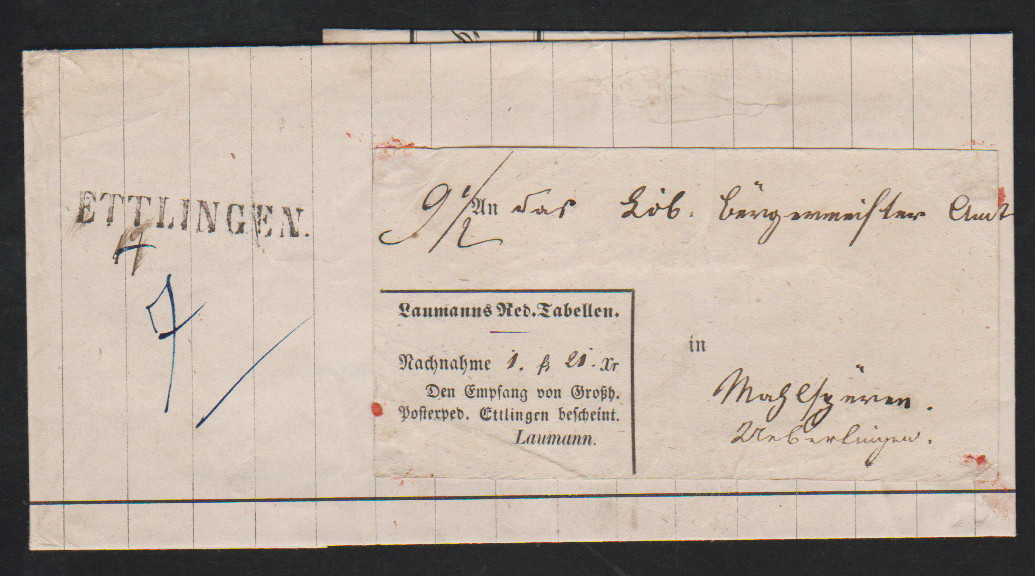 ETTLINGEN.
9 1/2
An das Löb. Bürgermeister Amt
Laumanns Red. Tabellen.
Nachnahme 1. fl 21. Xr
Den Empfang von Großh.
Postexped. Ettlingen bescheint.
Laumann.
in
Mahlspüren.
Ueberlingen.